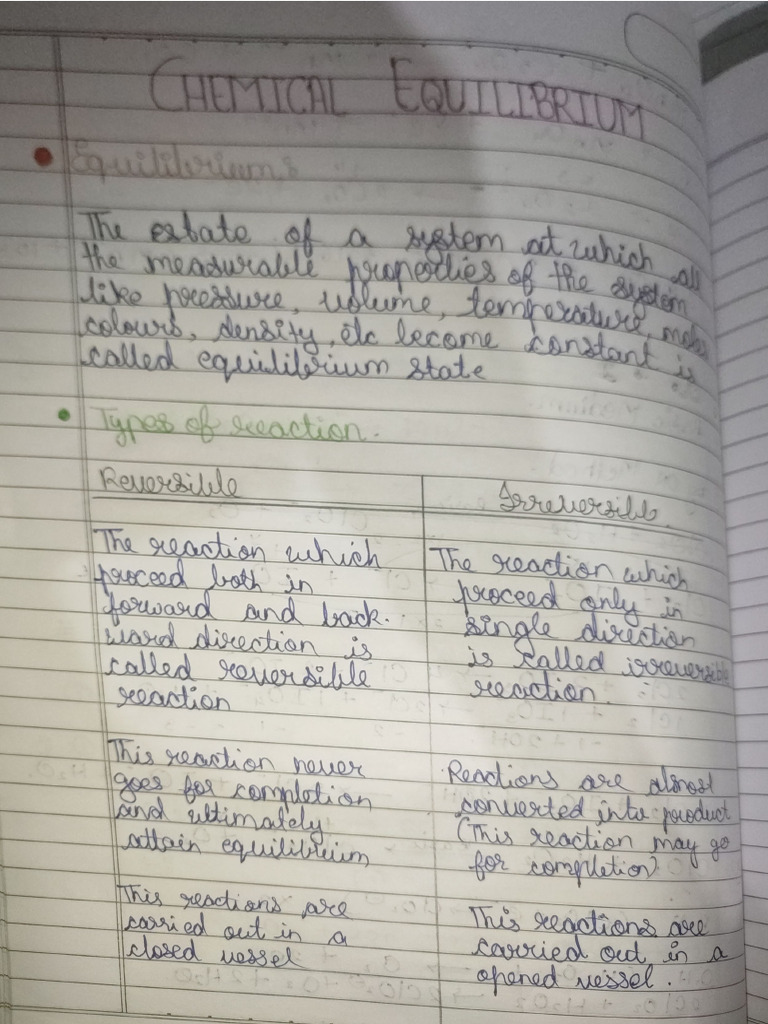 CHEMICAL EQUILIBRIUM
Equilibrium:
The estate of a system at which all
the measurable properties of the system
like pressure, volume, temperature, moles
colours, density, etc become constant is
called equilibrium state
Types of reaction.
Reversible
The reaction which
proceed both in
forward and back-
ward direction is
called reversible
reaction
This reaction never
goes for completion
and ultimately
attain equilibrium
This reactions are
carried out in a
closed vessel
Irreversible
The reaction which
proceed only in
single direction
is called irreversible
reaction.
Reactions are almost
converted into product
(This reaction may go
for completion)
This reactions are
carried out in a
opened vessel.